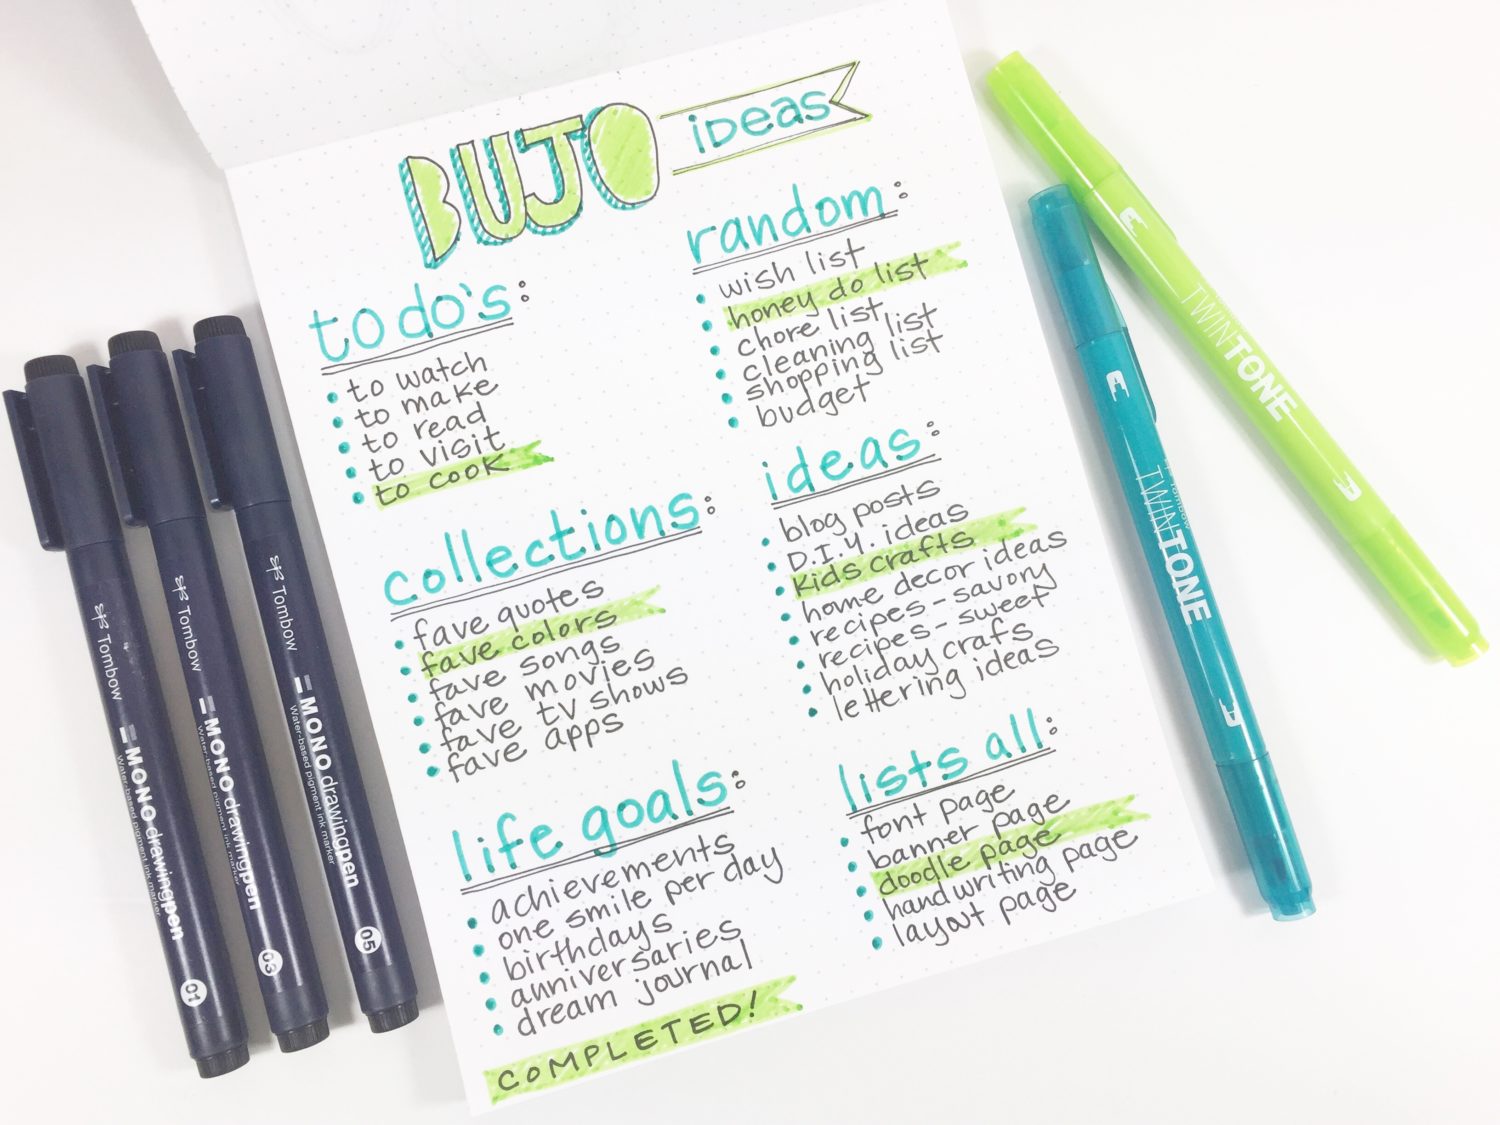 BUJO ideas
to do's:
• to watch
• to make
• to read
• to visit
• to cook
collections:
• fave quotes
• fave colors
• fave songs
• fave movies
• fave tv shows
• fave apps
life goals:
• achievements
• one smile per day
• birthdays
• anniversaries
• dream journal
COMPLETED!
random:
• wish list
• honey do list
• chore list
• cleaning list
• shopping list
• budget
ideas:
• blog posts
• D.I.Y. ideas
• Kids crafts
• home decor ideas
• recipes - savory
• recipes - sweet
• holiday crafts
• lettering ideas
lists all:
• font page
• banner page
• doodle page
• handwriting page
• layout page
Tombow
MONO drawing pen
Water-based pigment ink marker
01
Tombow
MONO drawing pen
Water-based pigment ink marker
03
Tombow
MONO drawing pen
Water-based pigment ink marker
05
Tombow
TWINTONE
TWINTONE